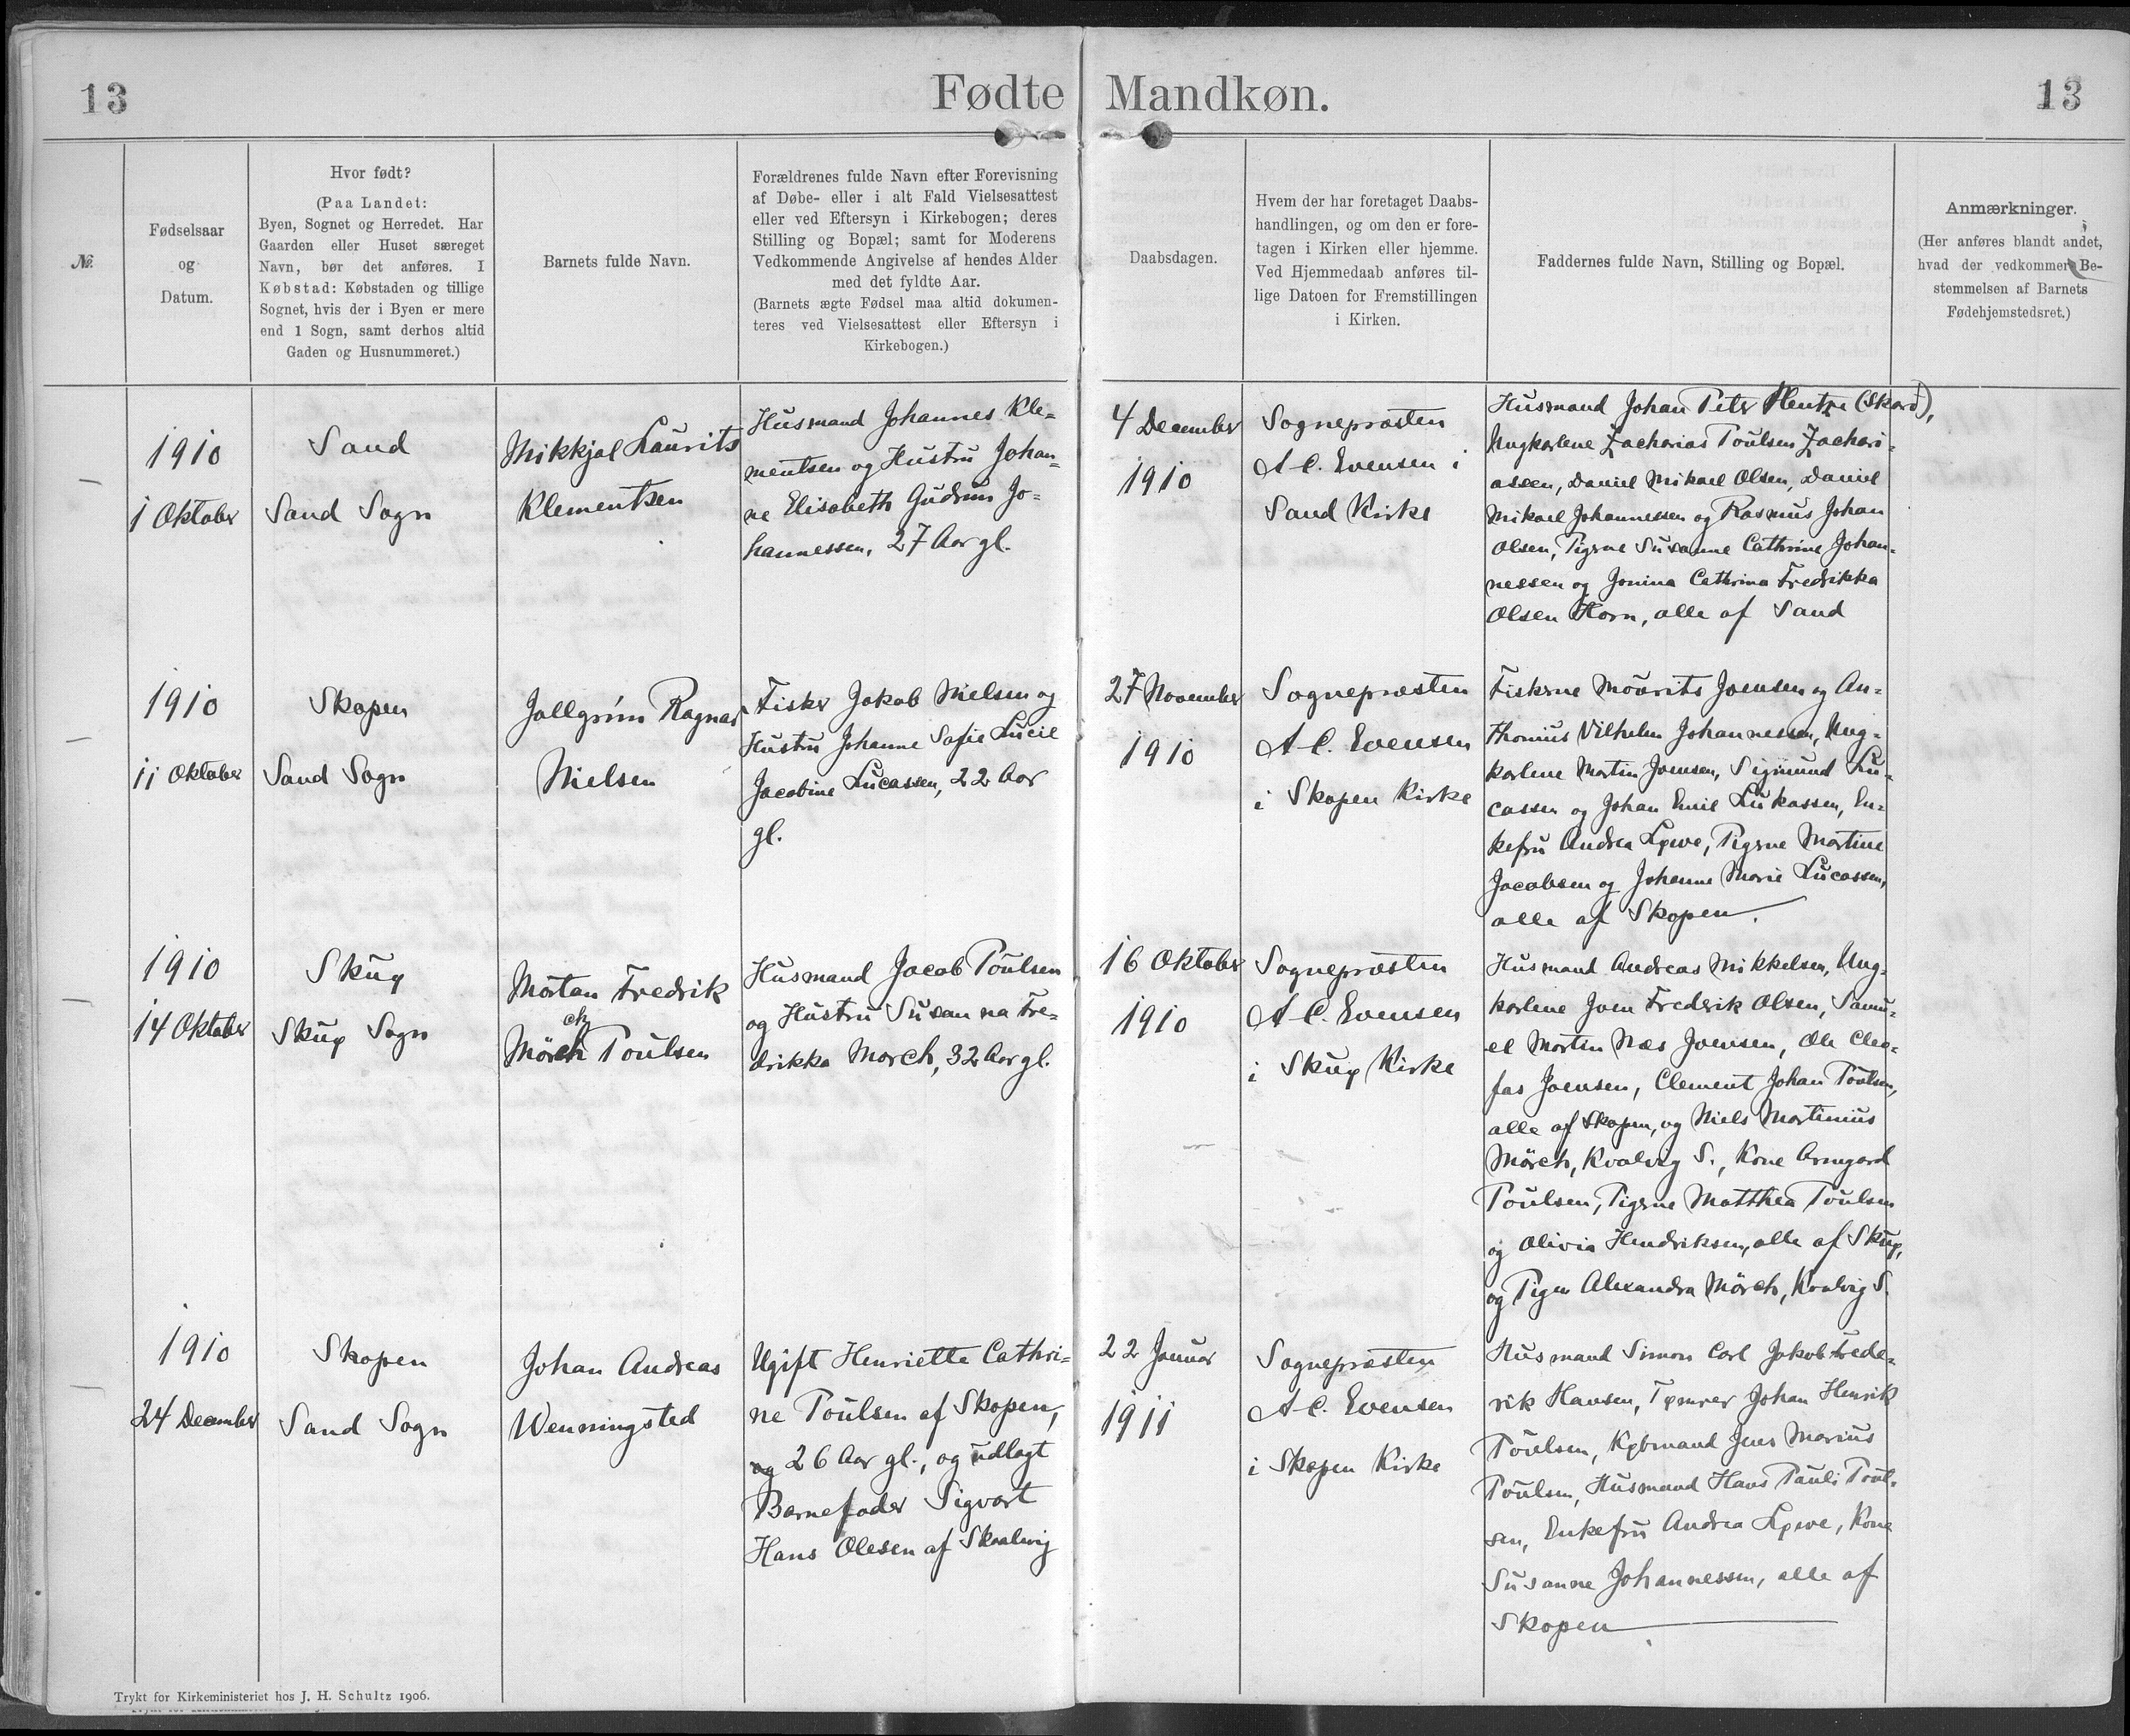 13
Fødte Mandkøn.
13
№
Fødselsaar
og
Datum.
Hvor født?
(Paa Landet:
Byen, Sognet og Herredet. Har
Gaarden eller Huset særeget
Navn, bør det anføres. I
Købstad: Købstaden og tillige
Sognet, hvis der i Byen er mere
end 1 Sogn, samt derhos altid
Gaden og Husnummeret.)
Barnets fulde Navn.
Forældrenes fulde Navn efter Forevisning
af Døbe- eller i alt Fald Vielsesattest
eller ved Eftersyn i Kirkebogen; deres
Stilling og Bopæl; samt for Moderens
Vedkommende Angivelse af hendes Alder
med det fyldte Aar.
(Barnets ægte Fødsel maa altid dokumen-
teres ved Vielsesattest eller Eftersyn i
Kirkebogen.)
Daabsdagen.
Hvem der har foretaget Daabs-
handlingen, og om den er fore-
tagen i Kirken eller hjemme.
Ved Hjemmedaab anføres til-
lige Datoen for Fremstillingen
i Kirken.
Faddernes fulde Navn, Stilling og Bopæl.
Anmærkninger.
(Her anføres blandt andet,
hvad der vedkommer Be-
stemmelsen af Barnets
Fødehjemstedsret.)
1910
1 Oktober
Sand
Sand Sogn
Mikkjal Laurits
Klementsen
Husmand Johannes Kle-
mentsen og Hustru Johan-
ne Elisabeth Gudrun Jo-
hannessen, 27 Aar gl.
4 December
1910
Sognepræsten
A. C. Evensen i
Sand Kirke
Husmand Johan Peter Hentze (Skard),
Ungkarlene Zacharias Poulsen Zachari-
assen, Daniel Mikael Olsen, Daniel
Mikael Johannessen og Rasmus Johan
Olsen, Pigerne Susanne Cathrine Johan-
nessen og Jonina Cathrina Fredrikka
Olsen Horn, alle af Sand
1910
11 Oktober
Skopen
Sand Sogn
Jallgrím Ragnar
Nielsen
Fisker Jakob Nielsen og
Hustru Johanne Sofie Lucie
Jacobine Lucassen, 22 Aar
gl.
27 November
1910
Sognepræsten
A. C. Evensen
i Skopen Kirke
Fiskerne Mourits Joensen og An-
thonius Vilhelm Johannessen, Ung-
karlene Martin Joensen, Sigmund Lu-
cassen og Johan Emil Lukassen, En-
kefru Andrea Løwe, Pigerne Martine
Jacobsen og Johanne Marie Lucassen,
alle af Skopen.
1910
14 Oktober
Skuø
Skuø Sogn
Mortan Fredrik
ch
Mörch Poulsen
Husmand Jacob Poulsen
og Hustru Susanna Fre-
drikka Morch, 32 Aar gl.
16 Oktober
1910
Sognepræsten
A. C. Evensen
i Skuø Kirke
Husmand Andreas Mikkelsen, Ung-
karlene Joen Frederik Olsen, Samu-
el Morten Næs Joensen, Ole Cleo-
fas Joensen, Clement Johan Poulsen,
alle af Skopen, og Niels Martinius
Mörch, Kvalvig S., Kone Armgard
Poulsen, Pigerne Matthea Poulsen
og Olivia Hendriksen, alle af Skuø,
og Pigen Alexandra Mörch, Kvalvig S.
1910
24 December
Skopen
Sand Sogn
Johan Andreas
Wenningsted
Ugift Henriette Cathri-
ne Poulsen af Skopen,
og 26 Aar gl., og udlagt
Barnefader Sigvart
Hans Olesen af Skaalevig
22 Januar
1911
Sognepræsten
A. C. Evensen
i Skopen Kirke
Husmand Simon Carl Jakob Frede-
rik Hansen, Tømrer Johan Henrik
Poulsen, Købmand Jens Marius
Poulsen, Husmand Hans Pauli Poul-
sen, Enkefru Andrea Løwe, Kone
Susanne Johannessen, alle af
Skopen
Trykt for Kirkeministeriet hos J. H. Schultz 1906.